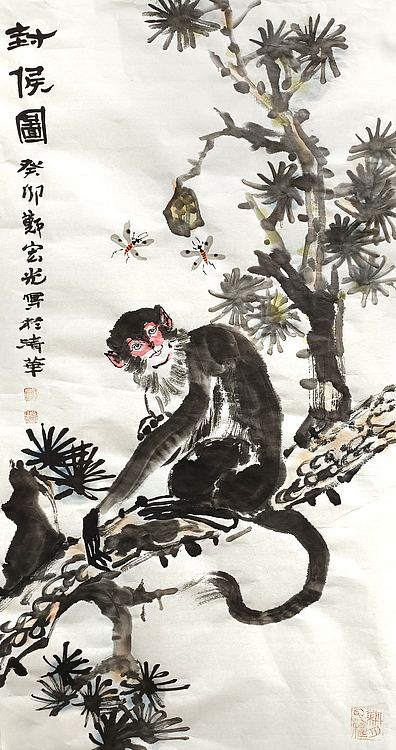 封侯圖
癸卯鄭宏光寫於清華